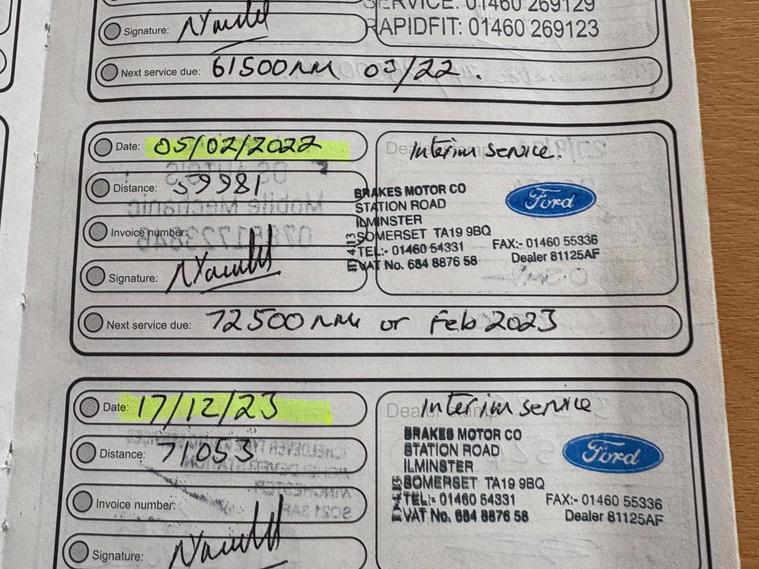 SERVICE: 01460 269129
RAPIDFIT: 01460 269123
Signature:
Next service due: 61500 03/22.
Date: 05/02/2022
Distance: 59981
Invoice number:
Signature:
Interim service.
BRAKES MOTOR CO
STATION ROAD
ILMINSTER
SOMERSET TA19 9BQ
TEL:- 01460 54331 FAX:- 01460 55336
VAT No. 684 8876 58 Dealer 81125AF
Ford
Next service due: 72500 or Feb 2023
Date: 17/12/23
Distance: 71053
Invoice number:
Signature:
Interim service
BRAKES MOTOR CO
STATION ROAD
ILMINSTER
SOMERSET TA19 9BQ
TEL:- 01460 54331 FAX:- 01460 55336
VAT No. 684 8876 58 Dealer 81125AF
Ford